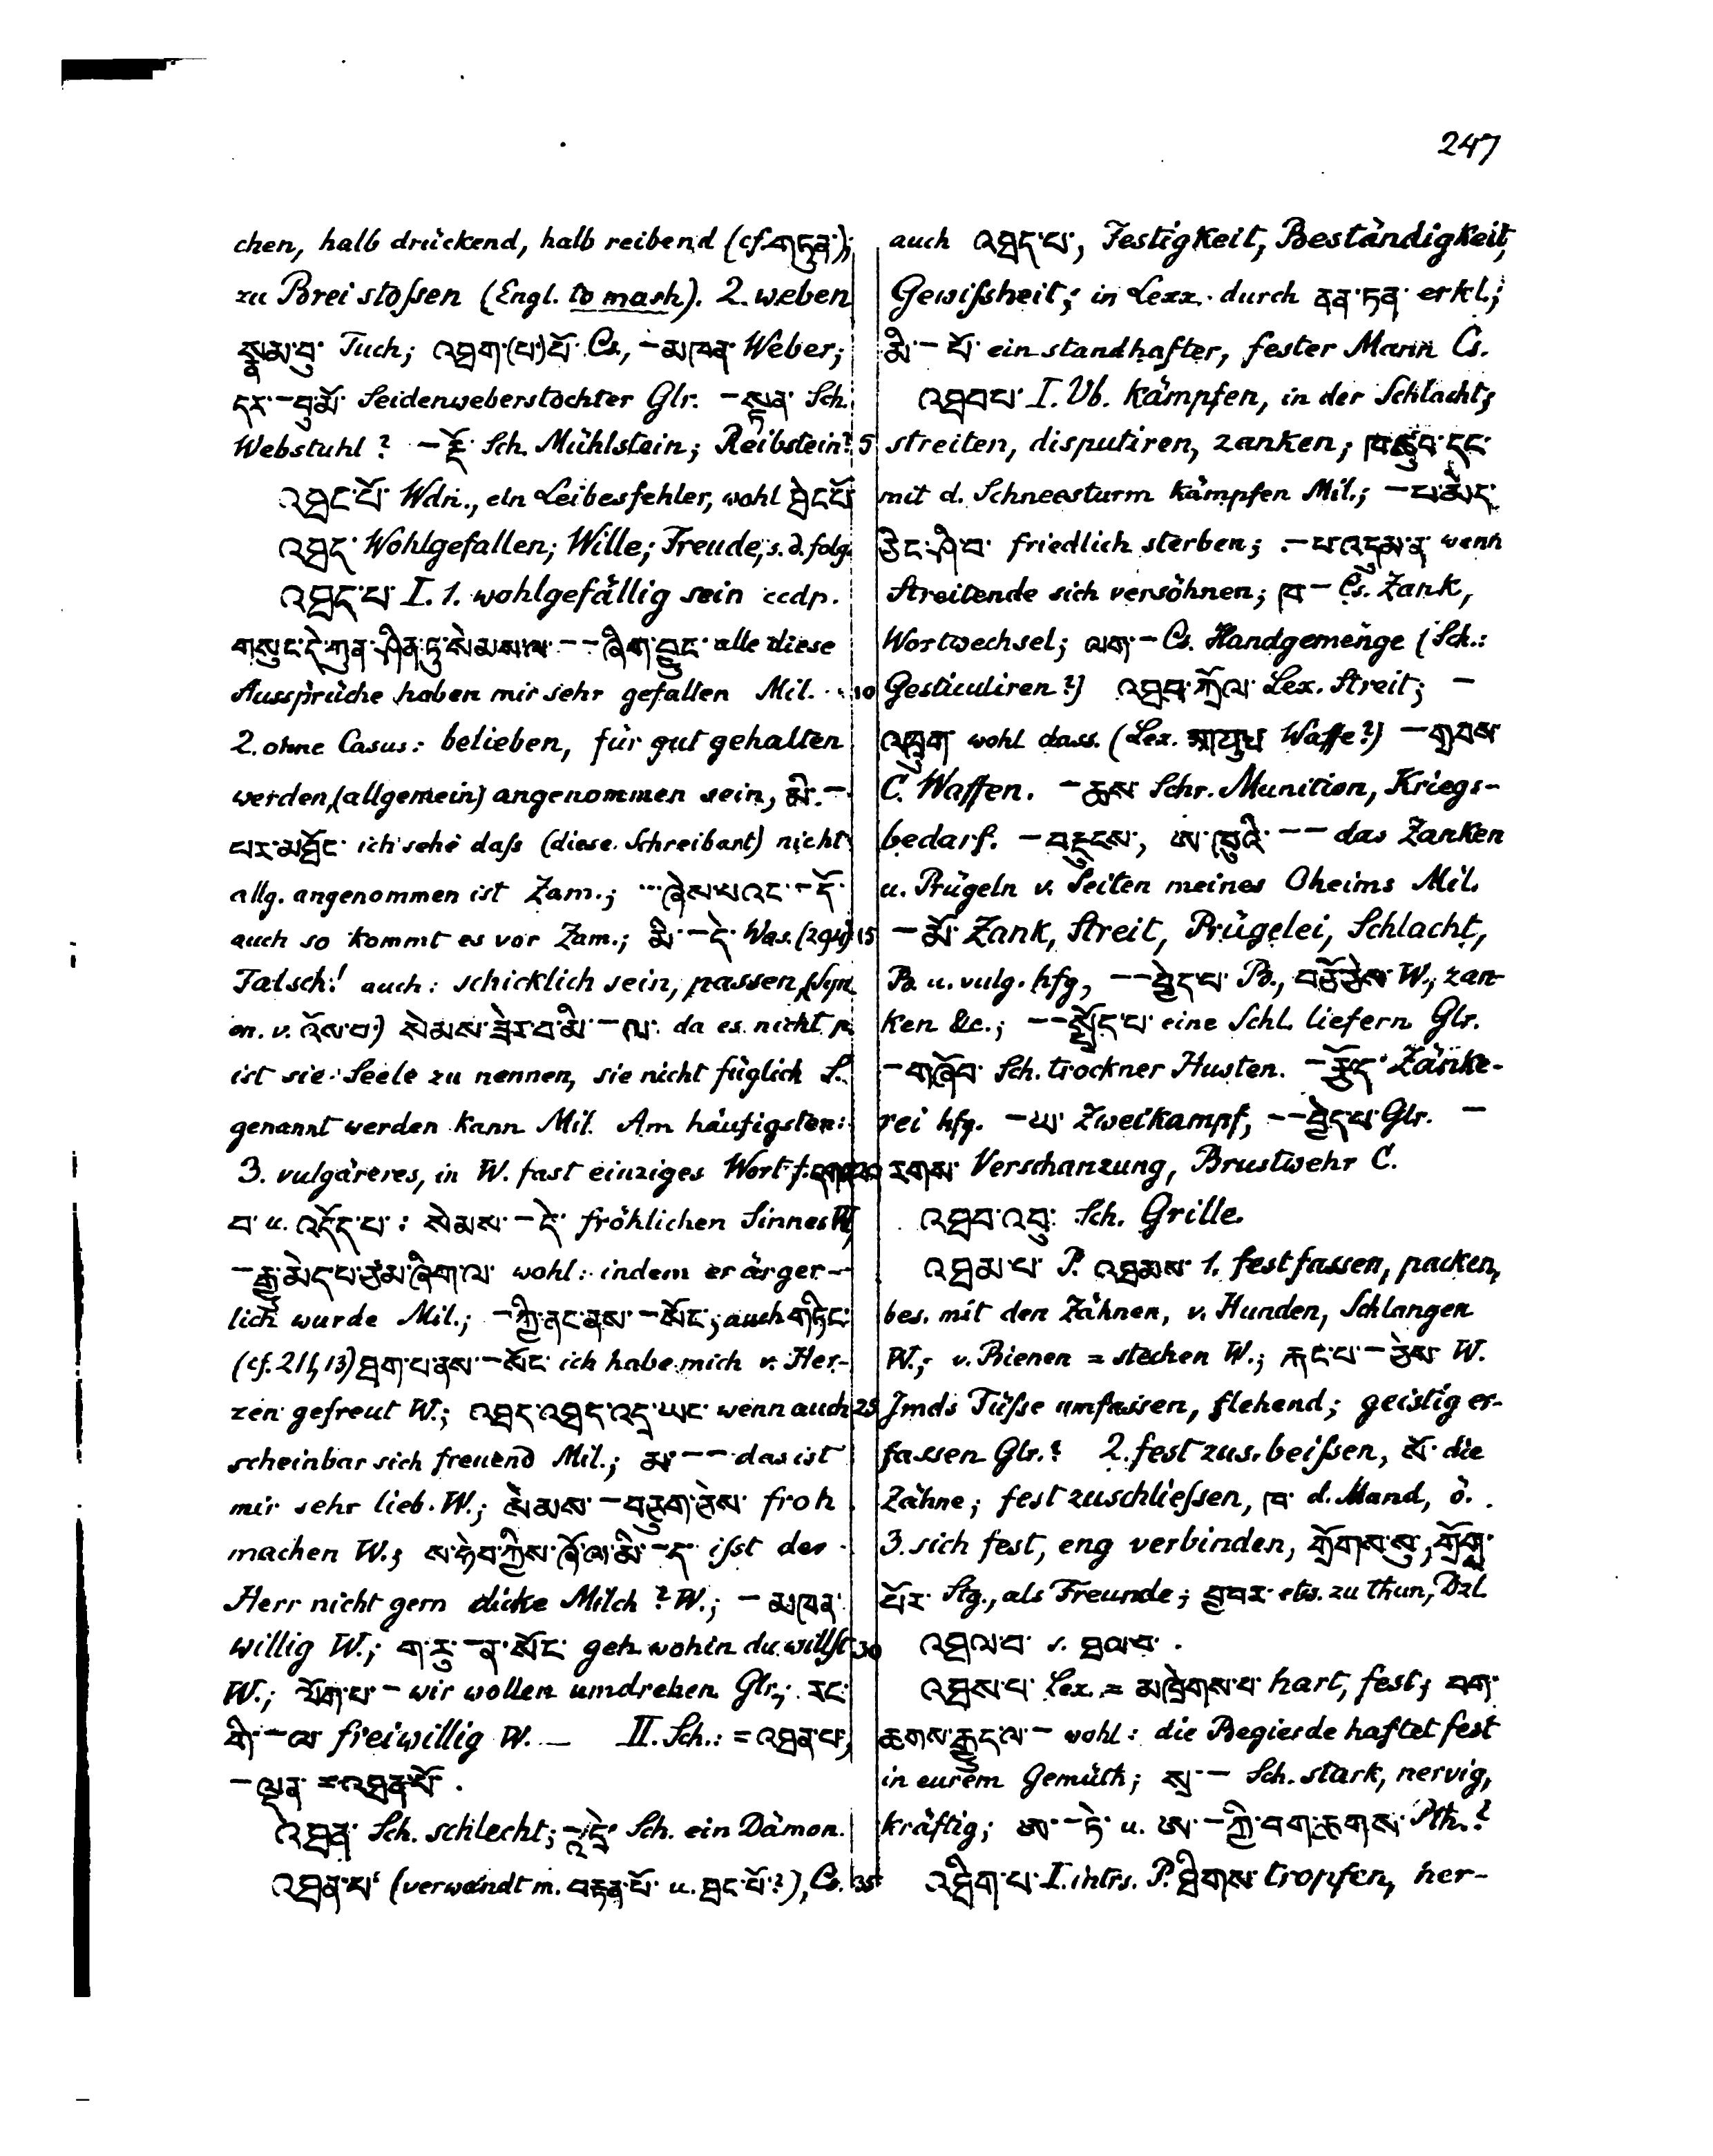 247
chen, halb drückend, halb reibend (cf. གཏུན་);
zu Brei stoßen (Engl. to mash). 2. weben
སྣམ་བུ་ Tuch; འཐག་(པ་)པོ་ Cs., – མཁན་ Weber;
དར་ – བུ་མོ་ Seidenweberstochter Glr. – Sch.
Webstuhl? – རྡོ་ Sch. Mühlstein; Reibstein? 5
འཐང་པོ་ Wdn., ein Leibesfehler, wohl ཐེང་པོ་
འཐད་ Wohlgefallen; Wille; Freude, s. d. folg.
འཐད་པ་ I. 1. wohlgefällig sein ccdp.
གསུང་དེ་ཀུན་ཤིན་ཏུ་སེམས་ལ་ – – ཞིག་བྱུང་ alle diese
Aussprüche haben mir sehr gefallen Mil. 10
2. ohne Casus: belieben, für gut gehalten
werden, (allgemein) angenommen sein, མི་ –
པར་མཐོང་ ich sehe daß (diese Schreibart) nicht
allg. angenommen ist Zam.; ... ཞེས་པའང་ – དོ་
auch so kommt es vor Zam.; མི་ – དེ་ Was. 15
Falsch! auch: schicklich sein, passen, (Syn
on. v. འོས་པ་) སེམས་ཟེར་བ་མི་ – ལ་ da es nicht p.
ist sie Seele zu nennen, sie nicht füglich S.
genannt werden kann Mil. Am häufigsten:
3. vulgäreres, in W. fast einziges Wort f. དགའ་ 20
བ་ u. འདོད་པ་: སེམས་ – དེ་ fröhlichen Sinnes W.,
– རྒྱུ་མེད་པ་ཙམ་ཞིག་ལ་ wohl: indem er ärger-
lich wurde Mil.; – ཀྱི་ནང་ནས་ – སོང་; auch གཏིང་
(cf. 211, 13) ཐག་པ་ནས་ – སོང་ ich habe mich v. Her-
zen gefreut W.; འཐད་འཐད་འདྲ་ཡང་ wenn auch 25
scheinbar sich freuend Mil.; མ་ – – das ist
mir sehr lieb W.; སེམས་ – བཅུག་ཅེས་ froh
machen W.; ས་ཧེབ་ཀྱིས་ཞོ་ལ་མི་ – ད་ ißt der
Herr nicht gern dicke Milch? W.; – མཁན་
willig W.; ག་རུ་ – ན་སོང་ geh wohin du willst 30
W.; ལོག་པ་ – wir wollen umdrehen Glr.; རང་
གི་ – ལ་ freiwillig W. — II. Sch.: = འཐན་པ་,
– ལྡན་ = འཐན་པོ་.
འཐན་ Sch. schlecht; – འདྲེ་ Sch. ein Dämon.
འཐན་པ་ (verwandt m. བརྟན་པོ་ u. ཐང་པོ་?), Cs. 35
auch འཐད་པ་, Festigkeit, Beständigkeit,
Gewißheit; in Lexx. durch ནན་ཏན་ erkl.;
མི་ – པོ་ ein standhafter, fester Mann Cs.
འཐབ་པ་ I. Vb. kämpfen, in der Schlacht;
streiten, disputiren, zanken; ཁ་ཆུབ་དང་
mit d. Schneesturm kämpfen Mil.; – པ་མེད་
ཅིང་ཤི་བ་ friedlich sterben; – པ་འདུམ་ན་ wenn
Streitende sich versöhnen; ཁ་ – Cs. Zank,
Wortwechsel; ལག་ – Cs. Handgemenge (Sch.:
Gesticuliren?) འཐབ་ཀྲོལ་ Lex. Streit; –
འཁྲུག་ wohl dass. (Lex. Waffe?) – གྲབས་
C. Waffen. – ཆས་ Schr. Munition, Kriegs-
bedarf. – བརྡུངས་, ཨ་ཁུའི་ – – das Zanken
u. Prügeln v. Seiten meines Oheims Mil.
– མོ་ Zank, Streit, Prügelei, Schlacht,
B. u. vulg. hfg, – – བྱེད་པ་ B., བཅོ་ཅེས་ W., zan-
ken &c.; – – སྤྲོད་པ་ eine Schl. liefern Glr.
– གཞོབ་ Sch. trockner Husten. – རྩོད་ Zänke-
rei hfg. – ཡ་ Zweikampf, – – བྱེད་པ་ Glr. –
རགས་ Verschanzung, Brustwehr C.
འཐབ་འབུ་ Sch. Grille.
འཐམ་པ་ P. འཐམས་ 1. fest fassen, packen,
bes. mit den Zähnen, v. Hunden, Schlangen
W.; v. Bienen = stechen W.; རྐང་པ་ – ཅེས་ W.
Jmds Füße umfassen, flehend; geistig er-
fassen Glr.? 2. fest zus. beißen, སོ་ die
Zähne; fest zuschließen, ཁ་ d. Mund, ò.
3. sich fest, eng verbinden, གྲོགས་སུ་, གྲོགས་
པོར་ Stg., als Freunde; བྱ་བར་ etw. zu thun, Dzl.
འཐལ་བ་ s. ཐལ་བ་.
འཐས་པ་ Lex. = མཁྲེགས་པ་ hart, fest; བག་
ཆགས་རྒྱུད་ལ་ – wohl: die Begierde haftet fest
in eurem Gemüth; སྲ་ – Sch. stark, nervig,
kräftig; ཨ་ – ཏེ་ u. ཨ་ – ཀྱི་བག་ཆགས་ Pth.?
འཐིག་པ་ I. intrs. P. ཐིགས་ tropfen, her-